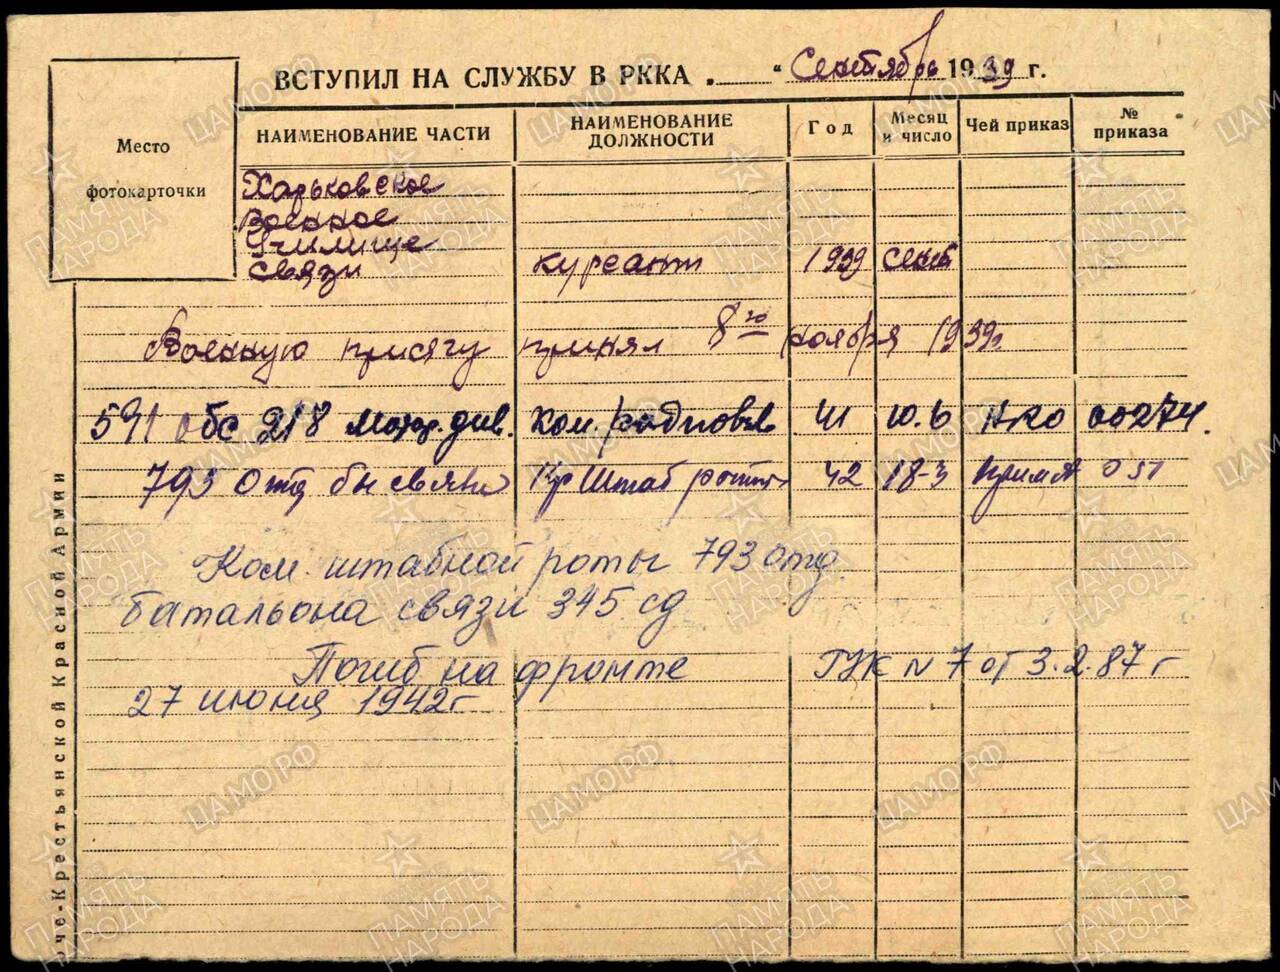 ВСТУПИЛ НА СЛУЖБУ В РККА „ “ Сентябрь 1939 г.
Место
фотокарточки
НАИМЕНОВАНИЕ ЧАСТИ
НАИМЕНОВАНИЕ
ДОЛЖНОСТИ
Год
Месяц
и число
Чей приказ
№
приказа
Харьковское
Военное
Училище
связи курсант 1939 сент
Военную присягу принял 8го ноября 1939г
591 обс 218 мотор. див. Ком. радиовзв 41 10.6 НКО 00274.
793 отд бн связи Кр Штаб роты 42 18-3 051
Ком. штабной роты 793 отд.
батальона связи 345 сд
Погиб на фронте ГУК N 7 от 3.2.87 г
27 июня 1942г
че-Крестьянской Красной Армии
ЦАМО.РФ
ПАМЯТЬ
НАРОДА